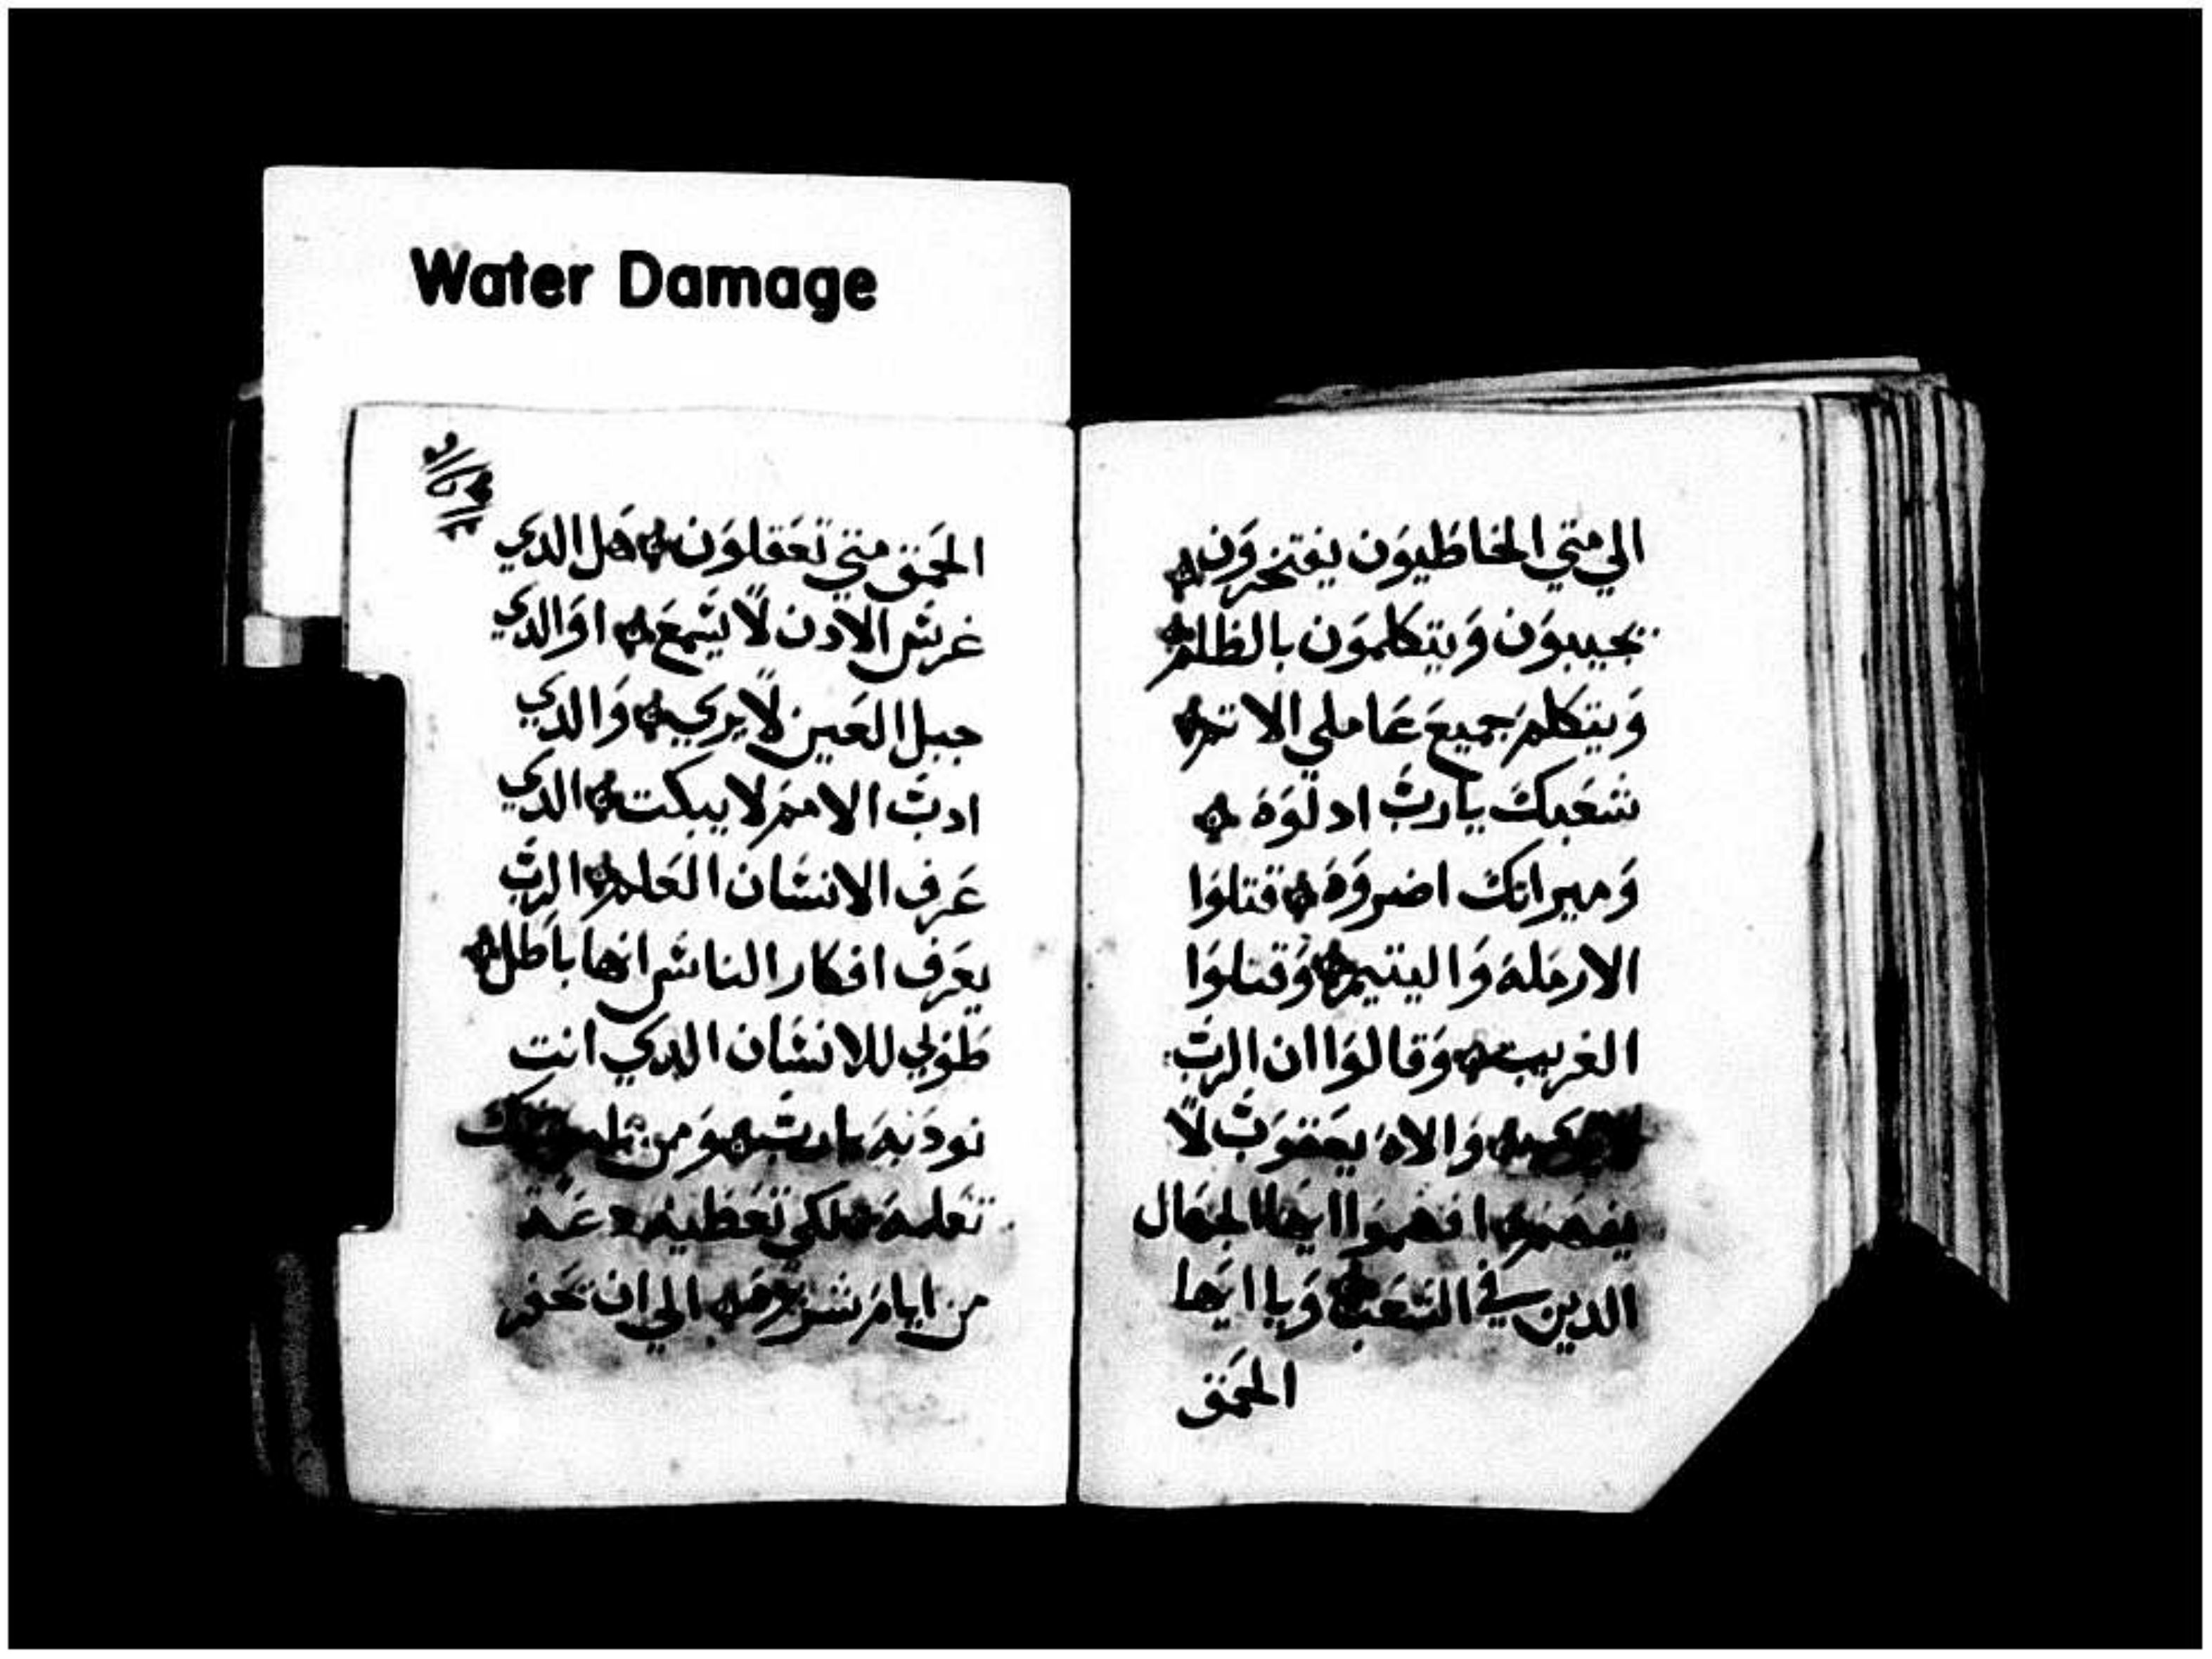 Water Damage
الي متي الخاطيون يفتخرون
يجيبون ويتكلمون بالظلم
ويتكلم جميع عاملي الاتم
شعبك يارب ادلوه
وميراتك اضروه قتلوا
الارمله واليتيم وقتلوا
الغريب وقالوا ان الرب
والاه يعقوب لا
يفهم افهموا ايها الجهال
الدين في الشعب ويا ايها
الحمق
الحمق متي تعقلون هل الدي
غرس الادن لا يسمع او الدي
جبل العين لا يري والدي
ادب الامم لا يبكت الدي
عرف الانسان العلم الرب
يعرف افكار الناس انها باطل
طوبي للانسان الدي انت
تودبه يارب ومن
تعلمه لكي تعطيه دعه
من ايام شريره الي ان تحفر